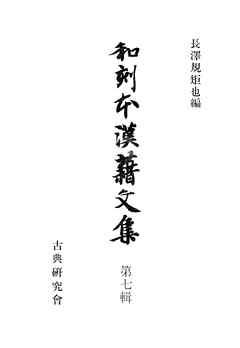 長澤規矩也編
和刻本漢籍文集
第七輯
古典研究會